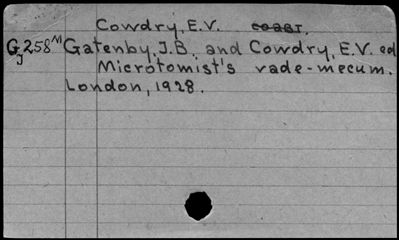 Cowdry, E.V. coabt.
GJ258M Gatenby, J.B. and Cowdry, E.V. ed
Microtomist's vade-mecum.
London, 1928.